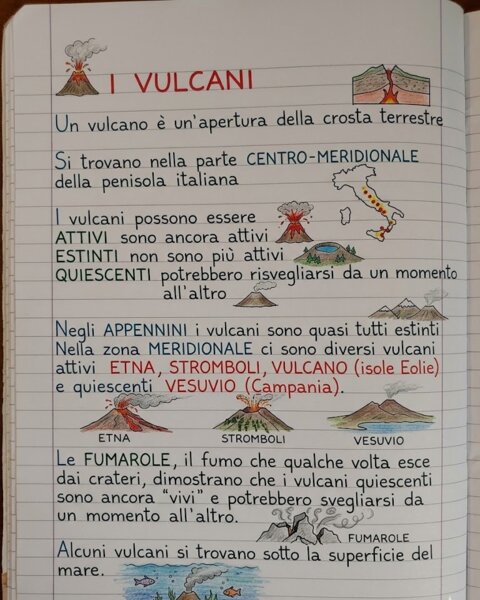 I VULCANI
Un vulcano è un'apertura della crosta terrestre
Si trovano nella parte CENTRO-MERIDIONALE
della penisola italiana
I vulcani possono essere
ATTIVI sono ancora attivi
ESTINTI non sono più attivi
QUIESCENTI potrebbero risvegliarsi da un momento
all'altro
Negli APPENNINI i vulcani sono quasi tutti estinti
Nella zona MERIDIONALE ci sono diversi vulcani
attivi ETNA, STROMBOLI, VULCANO (isole Eolie)
e quiescenti VESUVIO (Campania).
ETNA STROMBOLI VESUVIO
Le FUMAROLE, il fumo che qualche volta esce
dai crateri, dimostrano che i vulcani quiescenti
sono ancora "vivi" e potrebbero svegliarsi da
un momento all'altro.
FUMAROLE
Alcuni vulcani si trovano sotto la superficie del
mare.